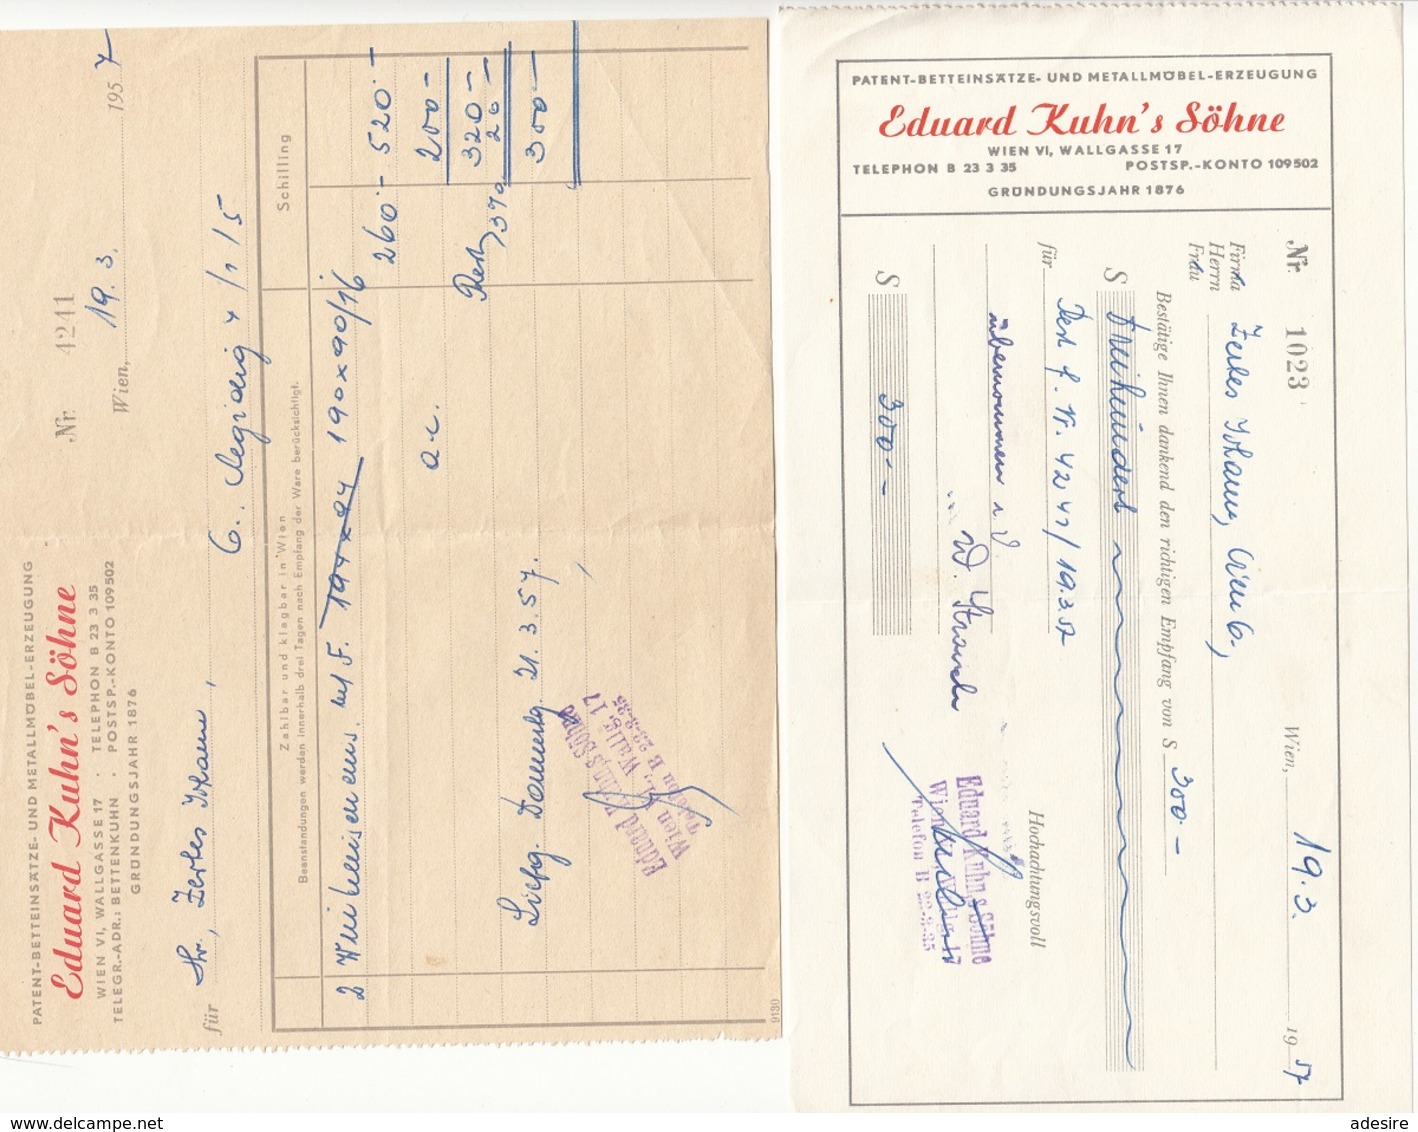 PATENT-BETTEINSÄTZE- UND METALLMÖBEL-ERZEUGUNG
Eduard Kuhn's Söhne
WIEN VI, WALLGASSE 17 · TELEPHON B 23 3 35
TELEGR.-ADR.: BETTENKUHN · POSTSP.-KONTO 109502
GRÜNDUNGSJAHR 1876
Nr. 4241
Wien, 19. 3. 1957
für Hr.,
6.,
Schilling
Zahlbar und klagbar in Wien
Beanstandungen werden innerhalb drei Tagen nach Empfang der Ware berücksichtigt.
2 190 x 90/16
260.- 520.-
a c. 200.-
Rest 320.-
20.-
300.-
21. 3. 57.
Eduard Kuhn,s Söhne
Wien VI., Wallg. 17
Telefon B 23-3-35
9130
PATENT-BETTEINSÄTZE- UND METALLMÖBEL-ERZEUGUNG
Eduard Kuhn's Söhne
WIEN VI, WALLGASSE 17
TELEPHON B 23 3 35 POSTSP.-KONTO 109502
GRÜNDUNGSJAHR 1876
Nr. 1023 Wien, 19. 3. 1957
Firma
Herrn
Frau
Wien 6.,
Bestätige Ihnen dankend den richtigen Empfang von S 300.-
S Dreihundert
für Rest f. Nr. 4241/19.3.57
übernommen i. V.
W.
Hochachtungsvoll
Eduard Kuhn,s Söhne
Wien VI., Wallg. 17
Telefon B 23-3-35
S 300.-
www.delcampe.net
adesire